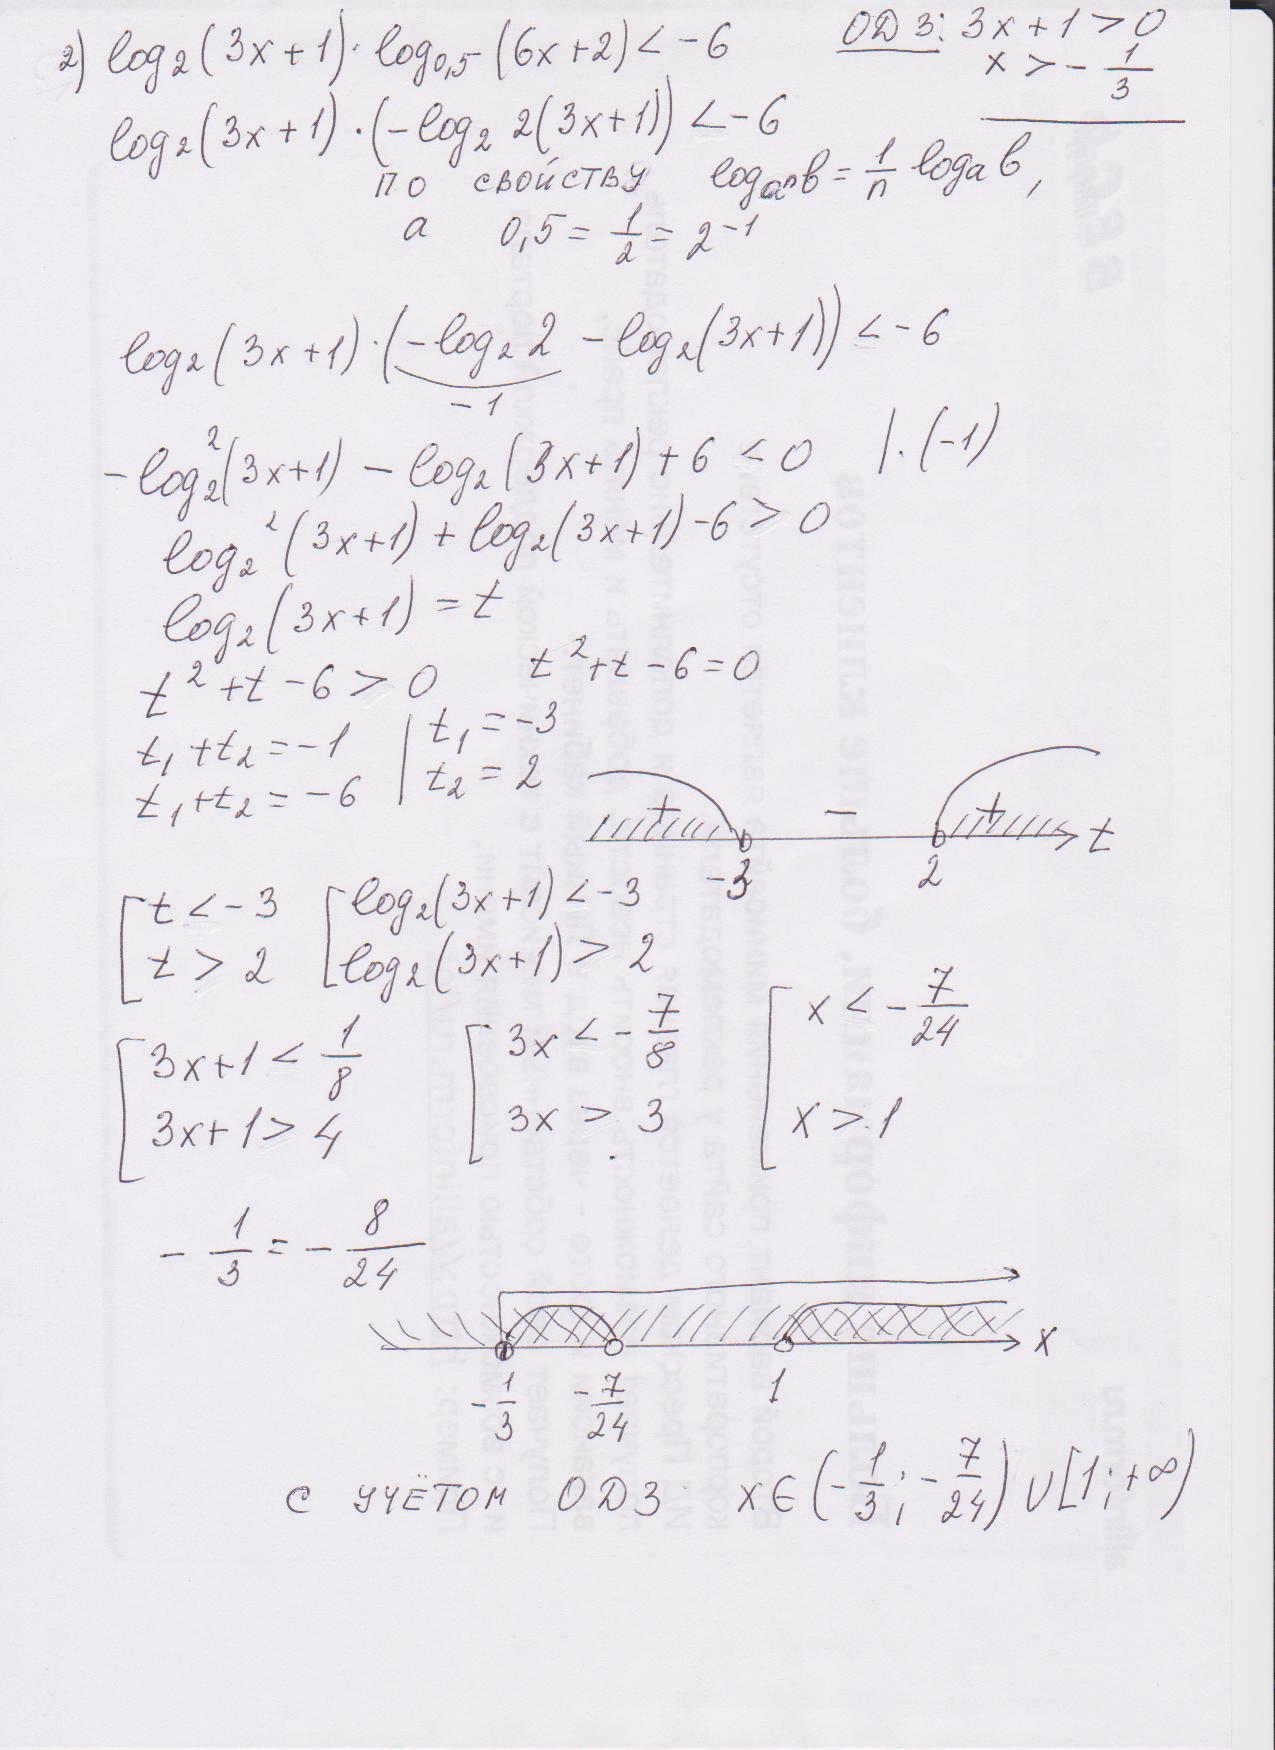 2) log₂(3x+1)·log₀,₅(6x+2) < -6
ОДЗ: 3x+1 > 0
x > -1/3
log₂(3x+1)·(-log₂ 2(3x+1)) < -6
по свойству logₐⁿb = 1/n logₐb,
а 0,5 = 1/2 = 2⁻¹
log₂(3x+1)·(-log₂2 - log₂(3x+1)) < -6
-1
-log₂²(3x+1) - log₂(3x+1) + 6 < 0 |·(-1)
log₂²(3x+1) + log₂(3x+1) - 6 > 0
log₂(3x+1) = t
t² + t - 6 > 0 t² + t - 6 = 0
t₁ + t₂ = -1 | t₁ = -3
t₁ + t₂ = -6 | t₂ = 2
+ - + t
-3 2
[ t < -3 [ log₂(3x+1) < -3
t > 2 log₂(3x+1) > 2
[ 3x+1 < 1/8 [ 3x < -7/8 [ x < -7/24
3x+1 > 4 3x > 3 x > 1
-1/3 = -8/24
x
-1/3 -7/24 1
с учётом ОДЗ x∈(-1/3; -7/24)∪[1; +∞)